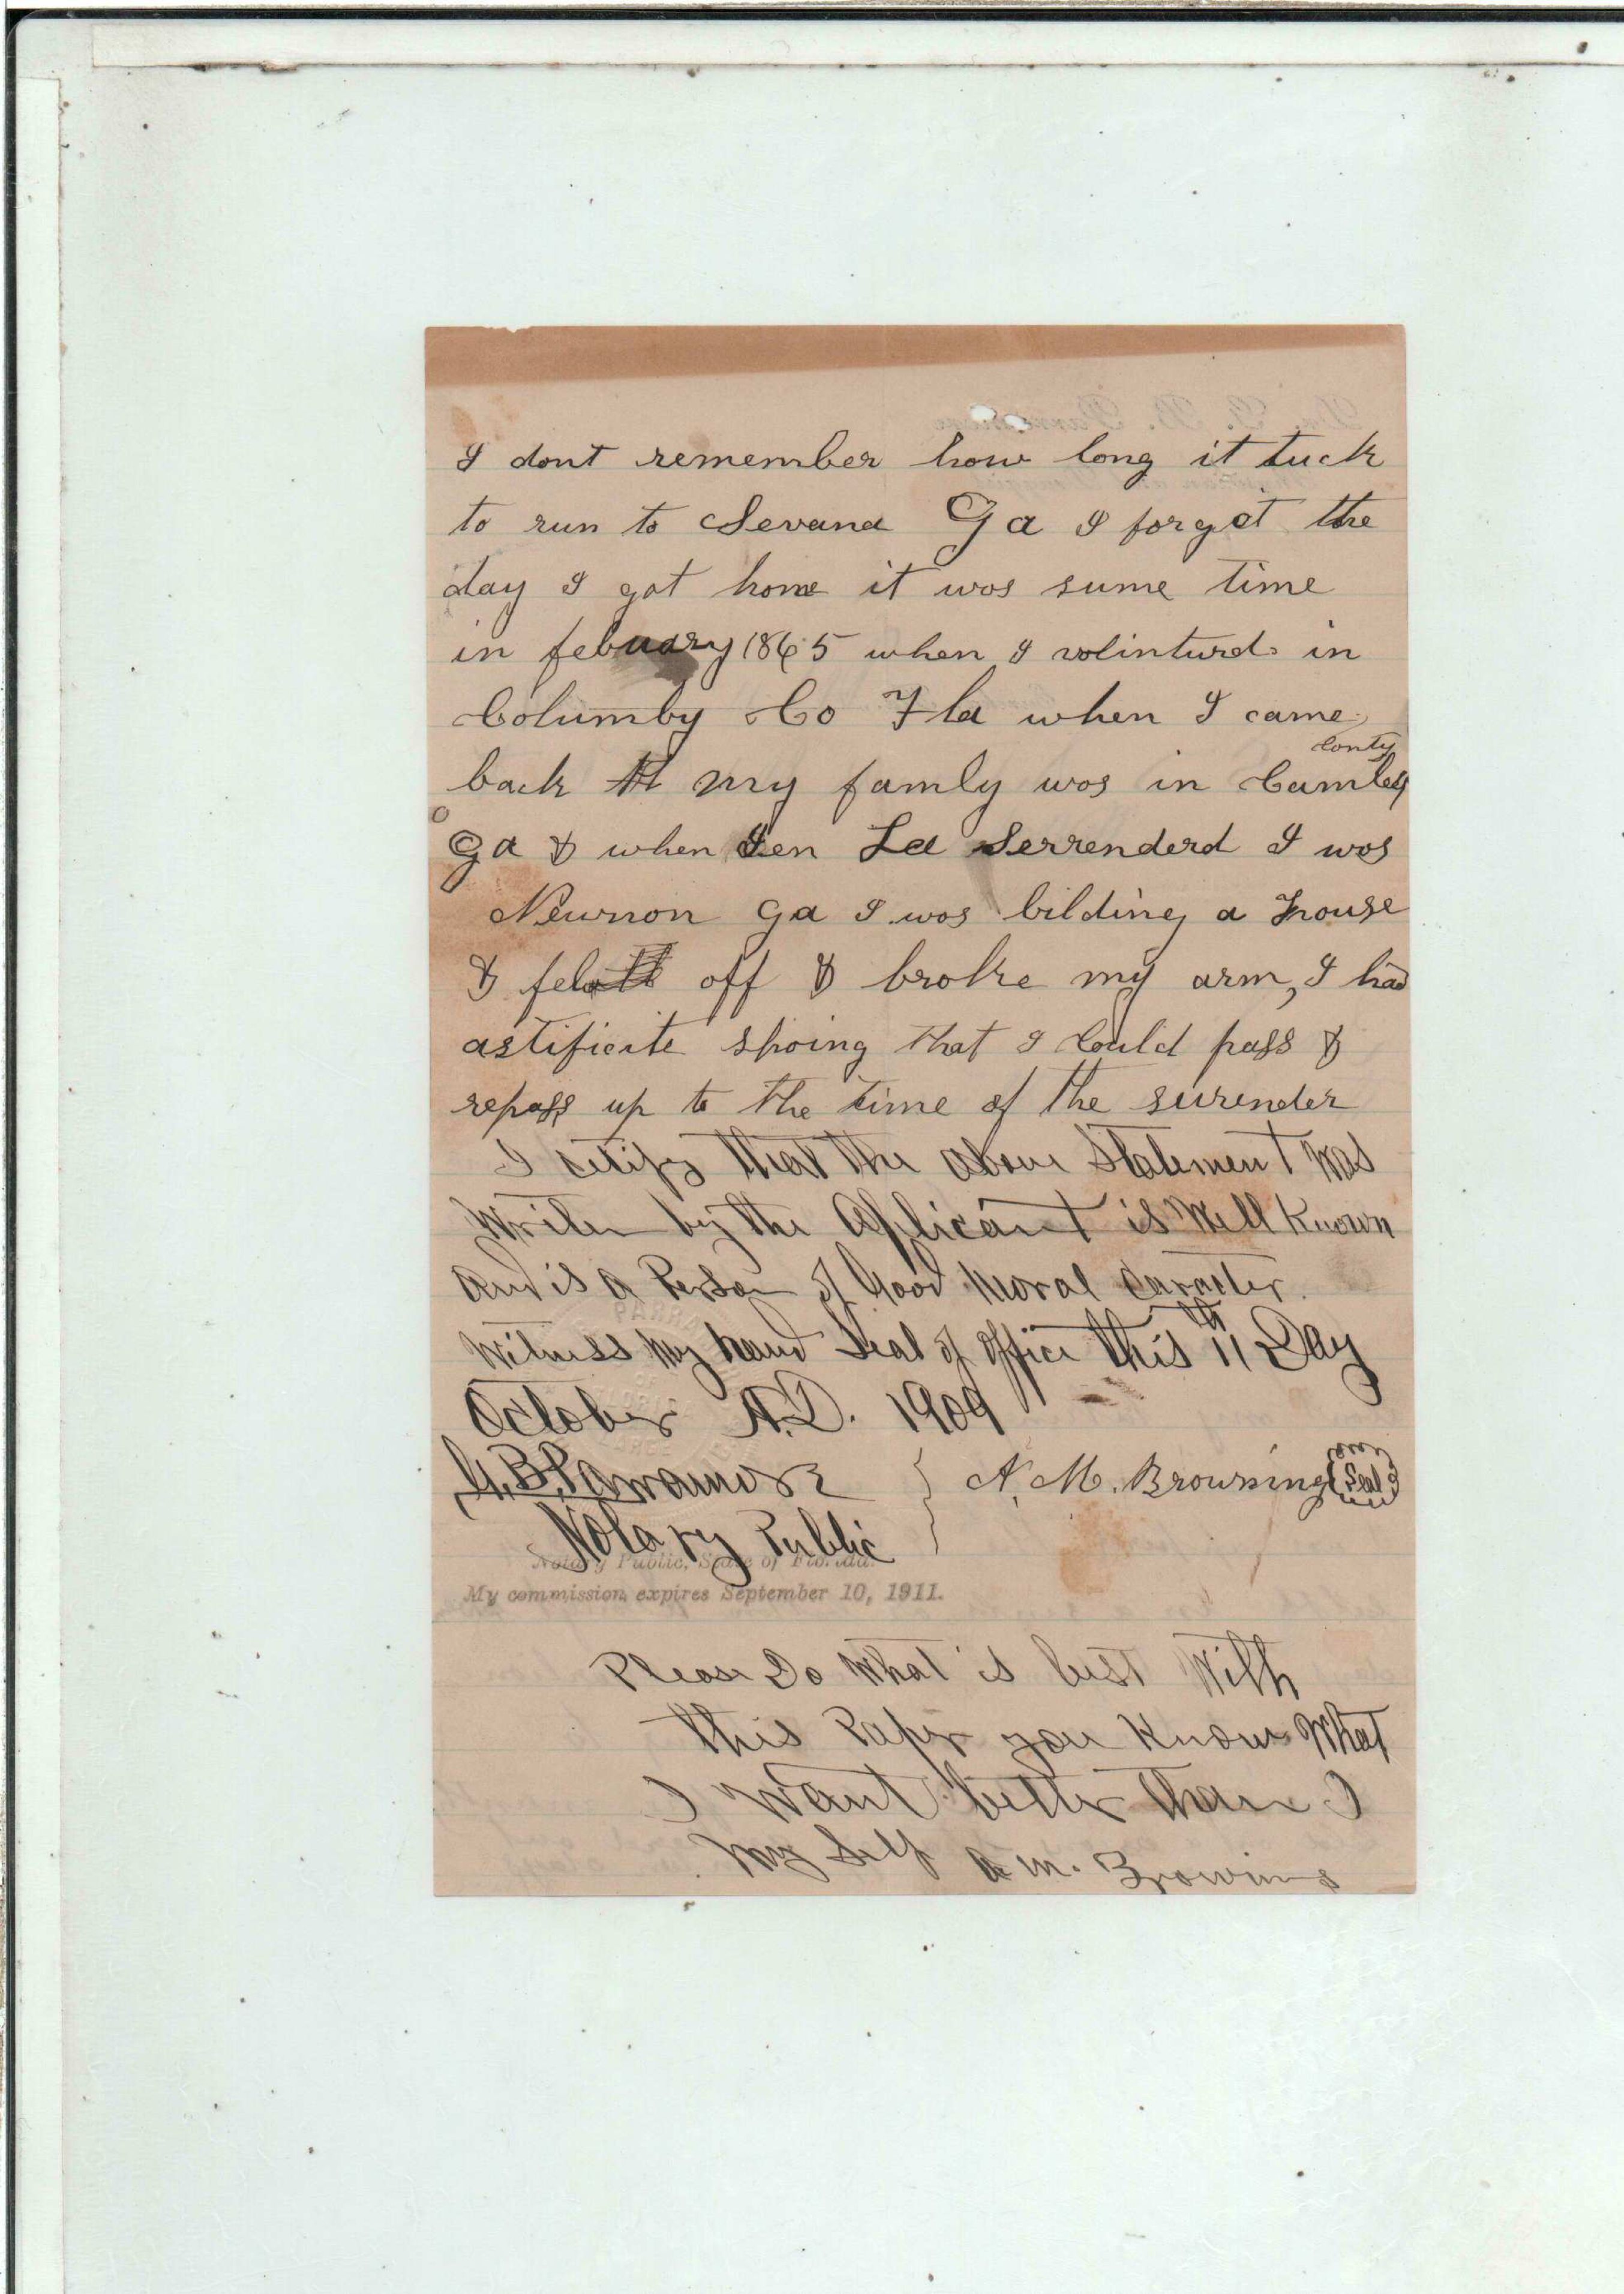 I dont remember how long it tuck
to run to Sevana Ga I forgot the
day I got home it wos sume time
in febuary 1865 when I volinturd in
Columby Co Fla when I came
conty
back my famly wos in Camley
Ga & when Gen Le Serrenderd I wos
Newnon ga I wos bilding a house
& fel off & broke my arm, I had
astificite shoing that I could pass &
repass up to the time of the surender
I cetify that the above Statement Was
Writen by the Aplicant is Well Known
And is a Person of Good Moral Caracter.
Witness My hand Seal of Office this 11th Day
October A.D. 1909
N. M. Browning (Seal)
Notary Public
Notary Public, State of Florida.
My commission expires September 10, 1911.
Please Do What is best With
this Paper you Know What
I Want better than I
My Self M. Browning